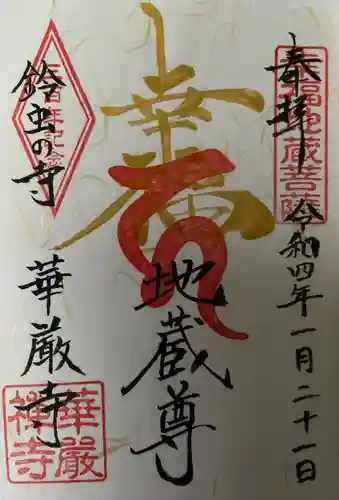 奉拝
幸福地蔵菩薩
令和四年一月二十一日
幸福
地蔵尊
鈴虫の寺
三百年記念
華厳寺
華厳
禅寺